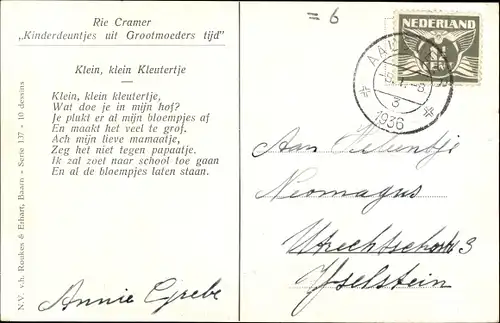 Rie Cramer
„Kinderdeuntjes uit Grootmoeders tijd"
Klein, klein Kleutertje
Klein, klein kleutertje,
Wat doe je in mijn hof?
Je plukt er al mijn bloempjes af
En maakt het veel te grof.
Ach mijn lieve mamaatje,
Zeg het niet tegen papaatje.
Ik zal zoet naar school toe gaan
En al de bloempjes laten staan.
N.V. v.h. Reukes & Erhart, Baarn - Serie 137 - 10 dessins
Annie
= 6
NEDERLAND
CENT
3
1936
Aan
Neomagus
IJselstein